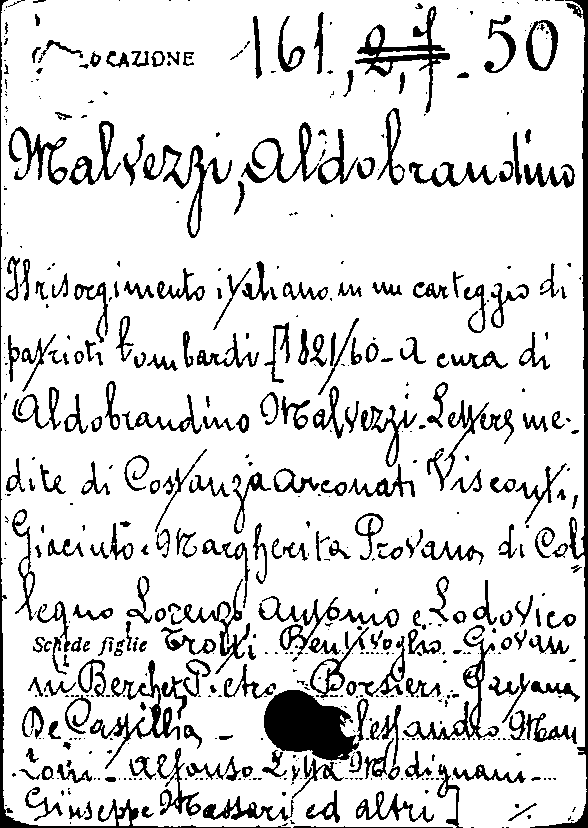 LOCAZIONE 161, 2, f. 50
Malvezzi, Aldobrandino
Il risorgimento italiano in un carteggio di
patrioti lombardi [1821/60 - A cura di
Aldobrandino Malvezzi. Lettere ine-
dite di Costanza Arconati Visconti,
Giacinto e Margherita Provana di Col
legno Lorenzo Antonio e Lodovico
Schede figlie Trotti Bentivoglio - Giovan
ni Berchet, Pietro Borsieri - Gaetano
De Castillia - Alessandro Man
zoni - Alfonso Litta Modignani -
Giuseppe Massari ed altri] ·/·